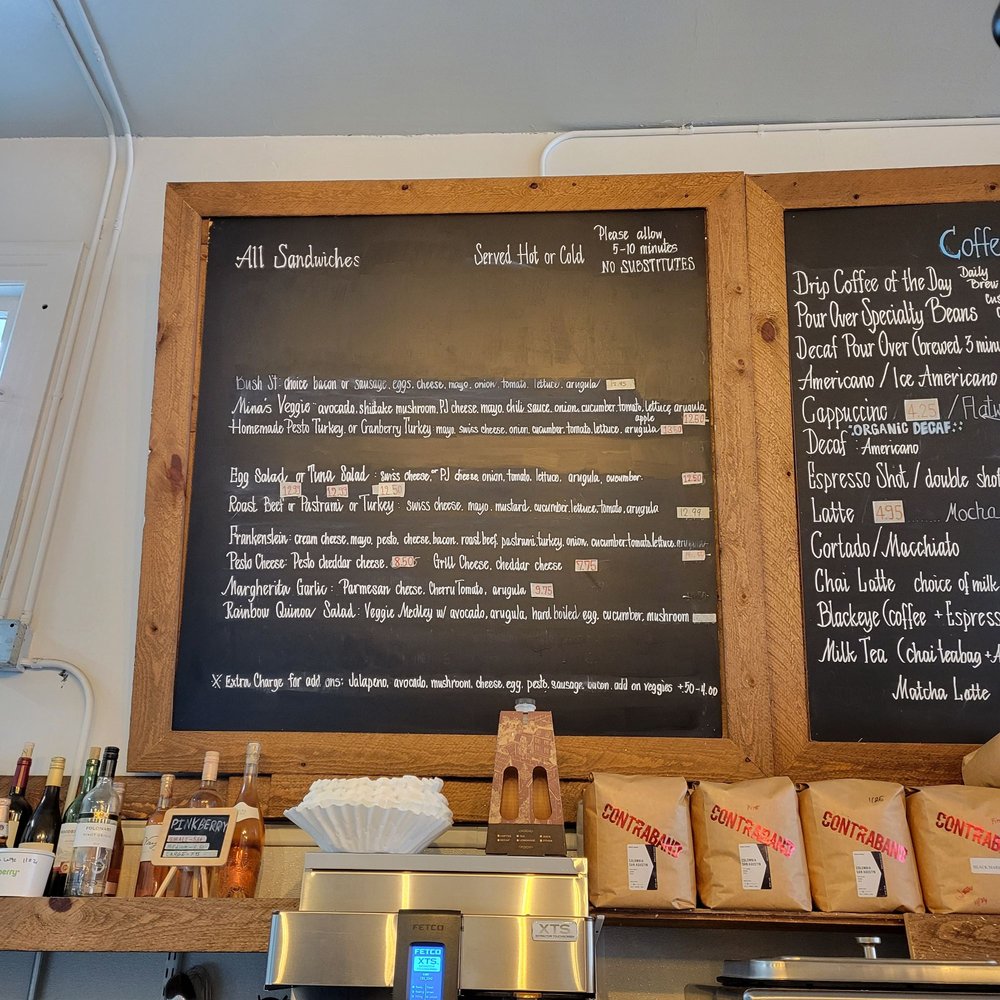 All Sandwiches
Served Hot or Cold
Please allow
5-10 minutes
NO SUBSTITUTES
Bush St: choice bacon or sausage, eggs, cheese, mayo, onion, tomato, lettuce, arugula
Mina's Veggie - avocado, shiitake mushroom, PJ cheese, mayo, chili sauce, onion, cucumber, tomato, lettuce, arugula,
apple 12.50
Homemade Pesto Turkey, or Cranberry Turkey: mayo, swiss cheese, onion, cucumber, tomato, lettuce, arugula
Egg Salad or Tuna Salad: swiss cheese, or PJ cheese, onion, tomato, lettuce, arugula, cucumber 12.50
12.95 12.50
Roast Beef or Pastrami or Turkey: swiss cheese, mayo, mustard, cucumber, lettuce, tomato, arugula 12.99
Frankenstein: cream cheese, mayo, pesto, cheese, bacon, roast beef, pastrami, turkey, onion, cucumber, tomato, lettuce, arugula
Pesto Cheese: Pesto cheddar cheese. 8.50 Grill Cheese, cheddar cheese 7.75
Margherita Garlic: Parmesan cheese, Cherry Tomato, arugula 9.75
Rainbow Quinoa Salad: Veggie Medley w/ avocado, arugula, hard boiled egg, cucumber, mushroom
Extra Charge for add ons: Jalapeno, avocado, mushroom, cheese, egg, pesto, sausage, bacon, add on veggies +50-4.00
Coffe
Drip Coffee of the Day Daily Brew
Pour Over Specialty Beans
Decaf Pour Over (brewed 3 minu
Americano / Ice Americano
Cappuccino 4.25 / Flat
ORGANIC DECAF
Decaf: Americano
Espresso Shot / double shot
Latte 4.95 Mocha
Cortado/Macchiato
Chai Latte choice of milk
Blackeye (Coffee + Espress
Milk Tea (chai teabag + A
Matcha Latte
PINKBERRY
CONTRABAND
CONTRABAND
CONTRABAND
CONTRABA
COLOMBIA
SAN AGUSTIN
FETCO
XTS
FETCO
XTS